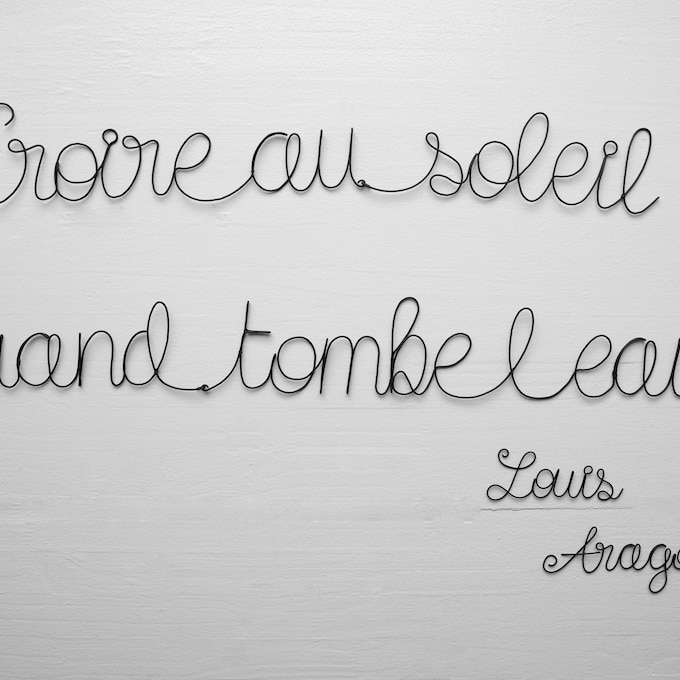 Croire au soleil
uand tombe l eau
Louis
Arago